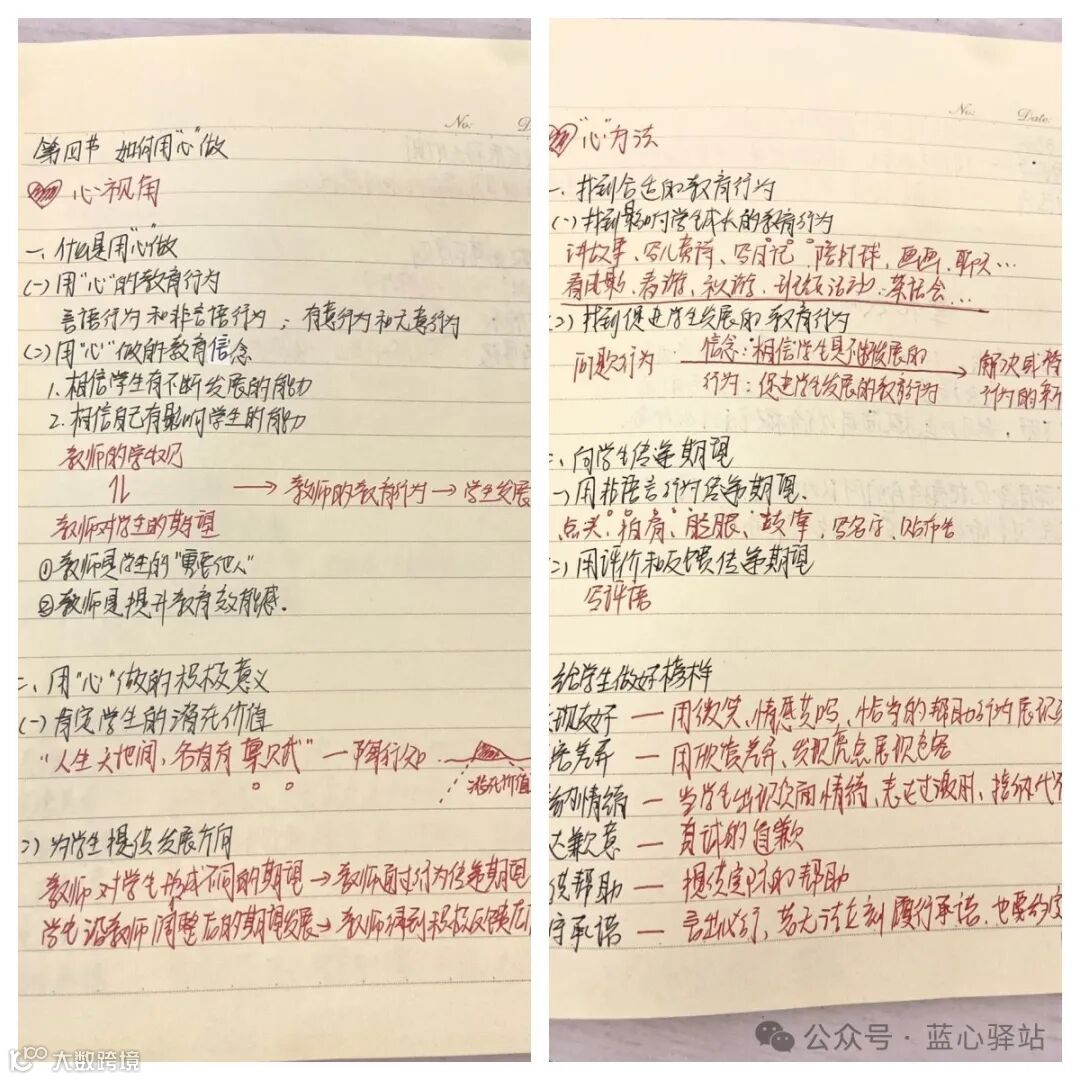 No:
第四节 如何用"心"做
心视角
一、什么是用"心"做
(一)用"心"的教育行为
言语行为和非言语行为；有意行为和无意行为
(二)用"心"做的教育信念
1.相信学生有不断发展的能力
2.相信自己有影响学生的能力
教师的学生观
→教师的教育行为→学生发展
教师对学生的期望
①教师是学生的"重要他人"
②教师是提升教育效能感.
二、用"心"做的积极意义
(一)肯定学生的潜在价值
"人生天地间,各自有禀赋"—陶行知
潜在价值
二)为学生提供发展方向
教师对学生形成不同的期望→教师通过行为传递期望
学生沿教师调整后的期望发展→教师得到积极反馈
No: Date:
"心"方法
一、找到合适的教育行为
(一)找到影响学生成长的教育行为
讲故事、写儿童诗、写日记"陪打球、画画、聊天…
看电影、春游、秋游、班级活动、茶话会…
(二)找到促进学生发展的教育行为
问题行为 信念:"相信"学生是不断发展的 → 解决或替
行为:促进学生发展的教育行为 行为的新
二、向学生传递期望
一)用非语言行为传递期望.
点头、拍肩、鼓掌、写名字、贴布告
二)用评价和反馈传递期望
写评语
给学生做好榜样
现友好—用微笑、情感共鸣、恰当的帮助行为展现
容差异—用欣赏差异、发现亮点展现包容
纳情绪—当学生出现负面情绪,
达歉意—真诚的道歉
供帮助—提供实际的帮助
守承诺—言出必行,若无法立刻履行承诺,也要约定
公众号·蓝心驿站
大数跨境